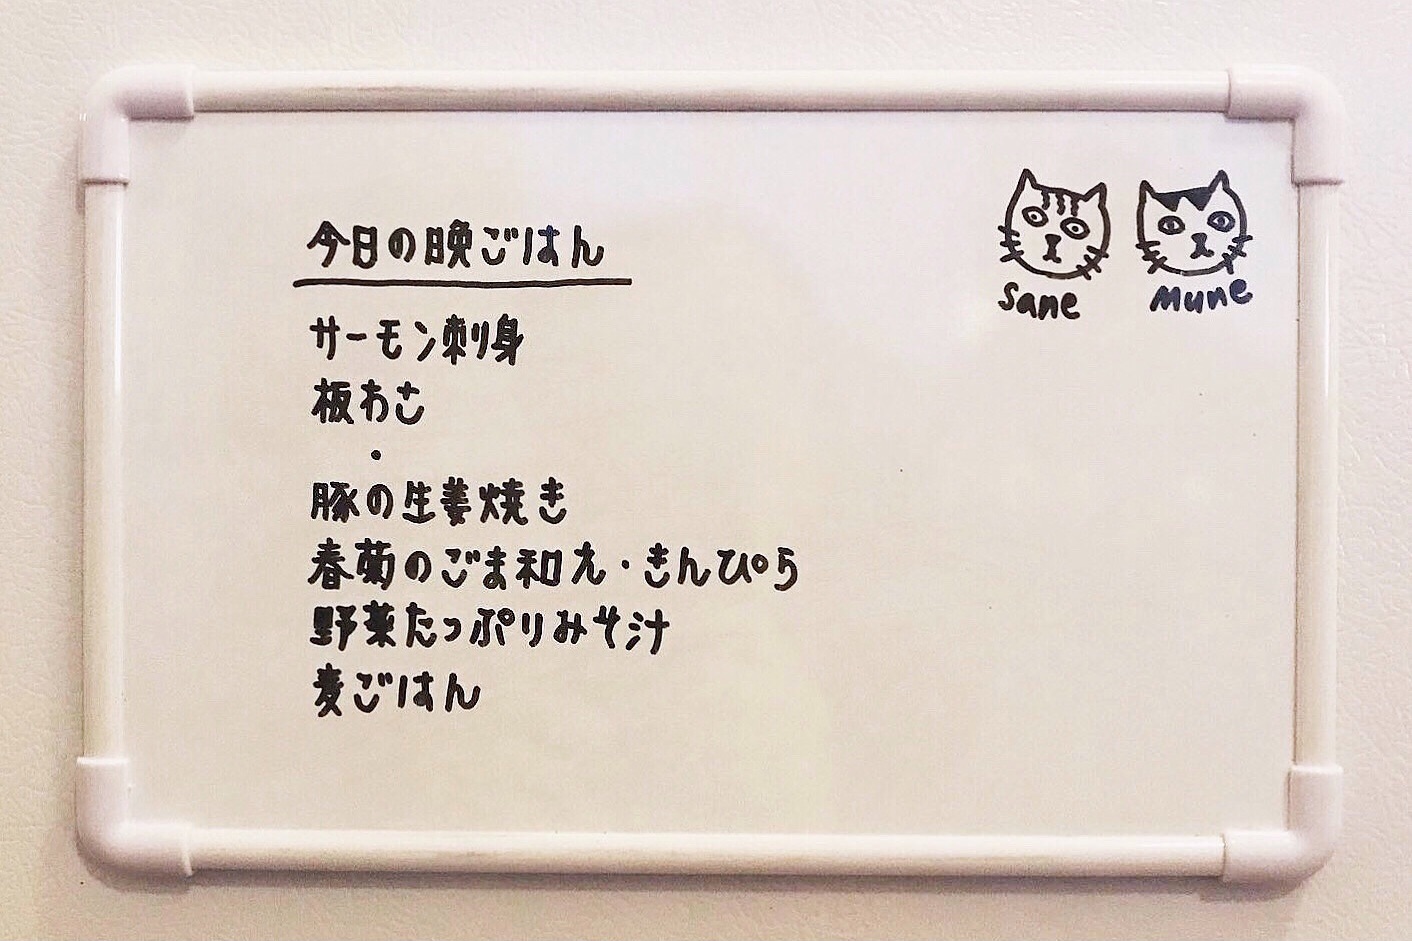 今日の晩ごはん
サーモン刺身
板わさ
・
豚の生姜焼き
春菊のごま和え・きんぴら
野菜たっぷりみそ汁
麦ごはん
Sane
Mune